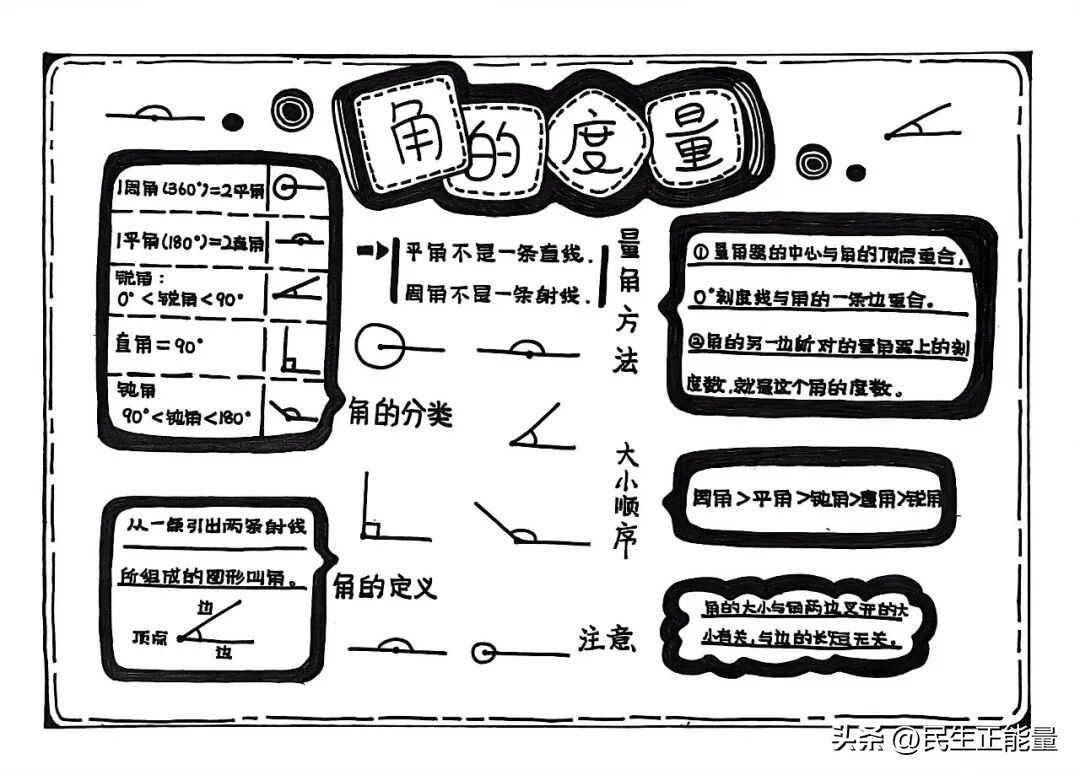 角的度量
1周角(360°)=2平角
1平角(180°)=2直角
锐角:
0°<锐角<90°
直角=90°
钝角
90°<钝角<180°
角的分类
平角不是一条直线.
周角不是一条射线.
量角方法
①量角器的中心与角的顶点重合,
0°刻度线与角的一条边重合。
②角的另一边所对的量角器上的刻
度数,就是这个角的度数。
大小顺序
周角>平角>钝角>直角>锐角
从一条引出两条射线
所组成的图形叫角。
边
顶点
边
角的定义
注意
角的大小与角两边叉开的大
小有关,与边的长短无关。
头条 @民生正能量